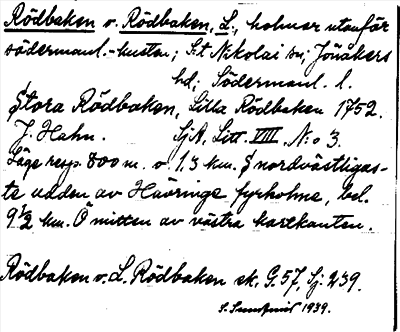 Rödbaken o. Rödbaken, L., holmar utanför
södermanl.-kusten; S:t Nikolai sn; Jönåkers
hd; Södermanl. l.
Stora Rödbaken, Lilla Rödbaken 1752.
J. Hahn. SjA, Litt. VIII, N:o 3.
Läge resp. 800 m. o. 1,3 km. S nordvästligas-
te udden av Hävringe fyrholme, bel.
9 1/2 km. Ö mitten av västra kartkanten.
Rödbaken o. L. Rödbaken ek. G. 57, Sj. 239.
1939.